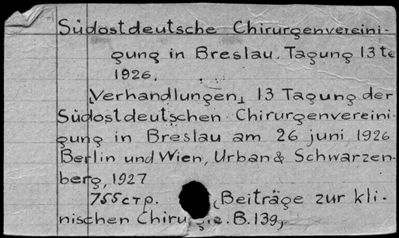 Südostdeutsche Chirurgenvereini-
gung in Breslau. Tagung 13te
1926.
„Verhandlungen„ 13 Tagung der
Südostdeutschen Chirurgenvereini-
gung in Breslau am 26 juni 1926
Berlin und Wien, Urban & Schwarzen-
berg, 1927
755стр. (Beiträge zur kli-
nischen Chirurgie. B.139,